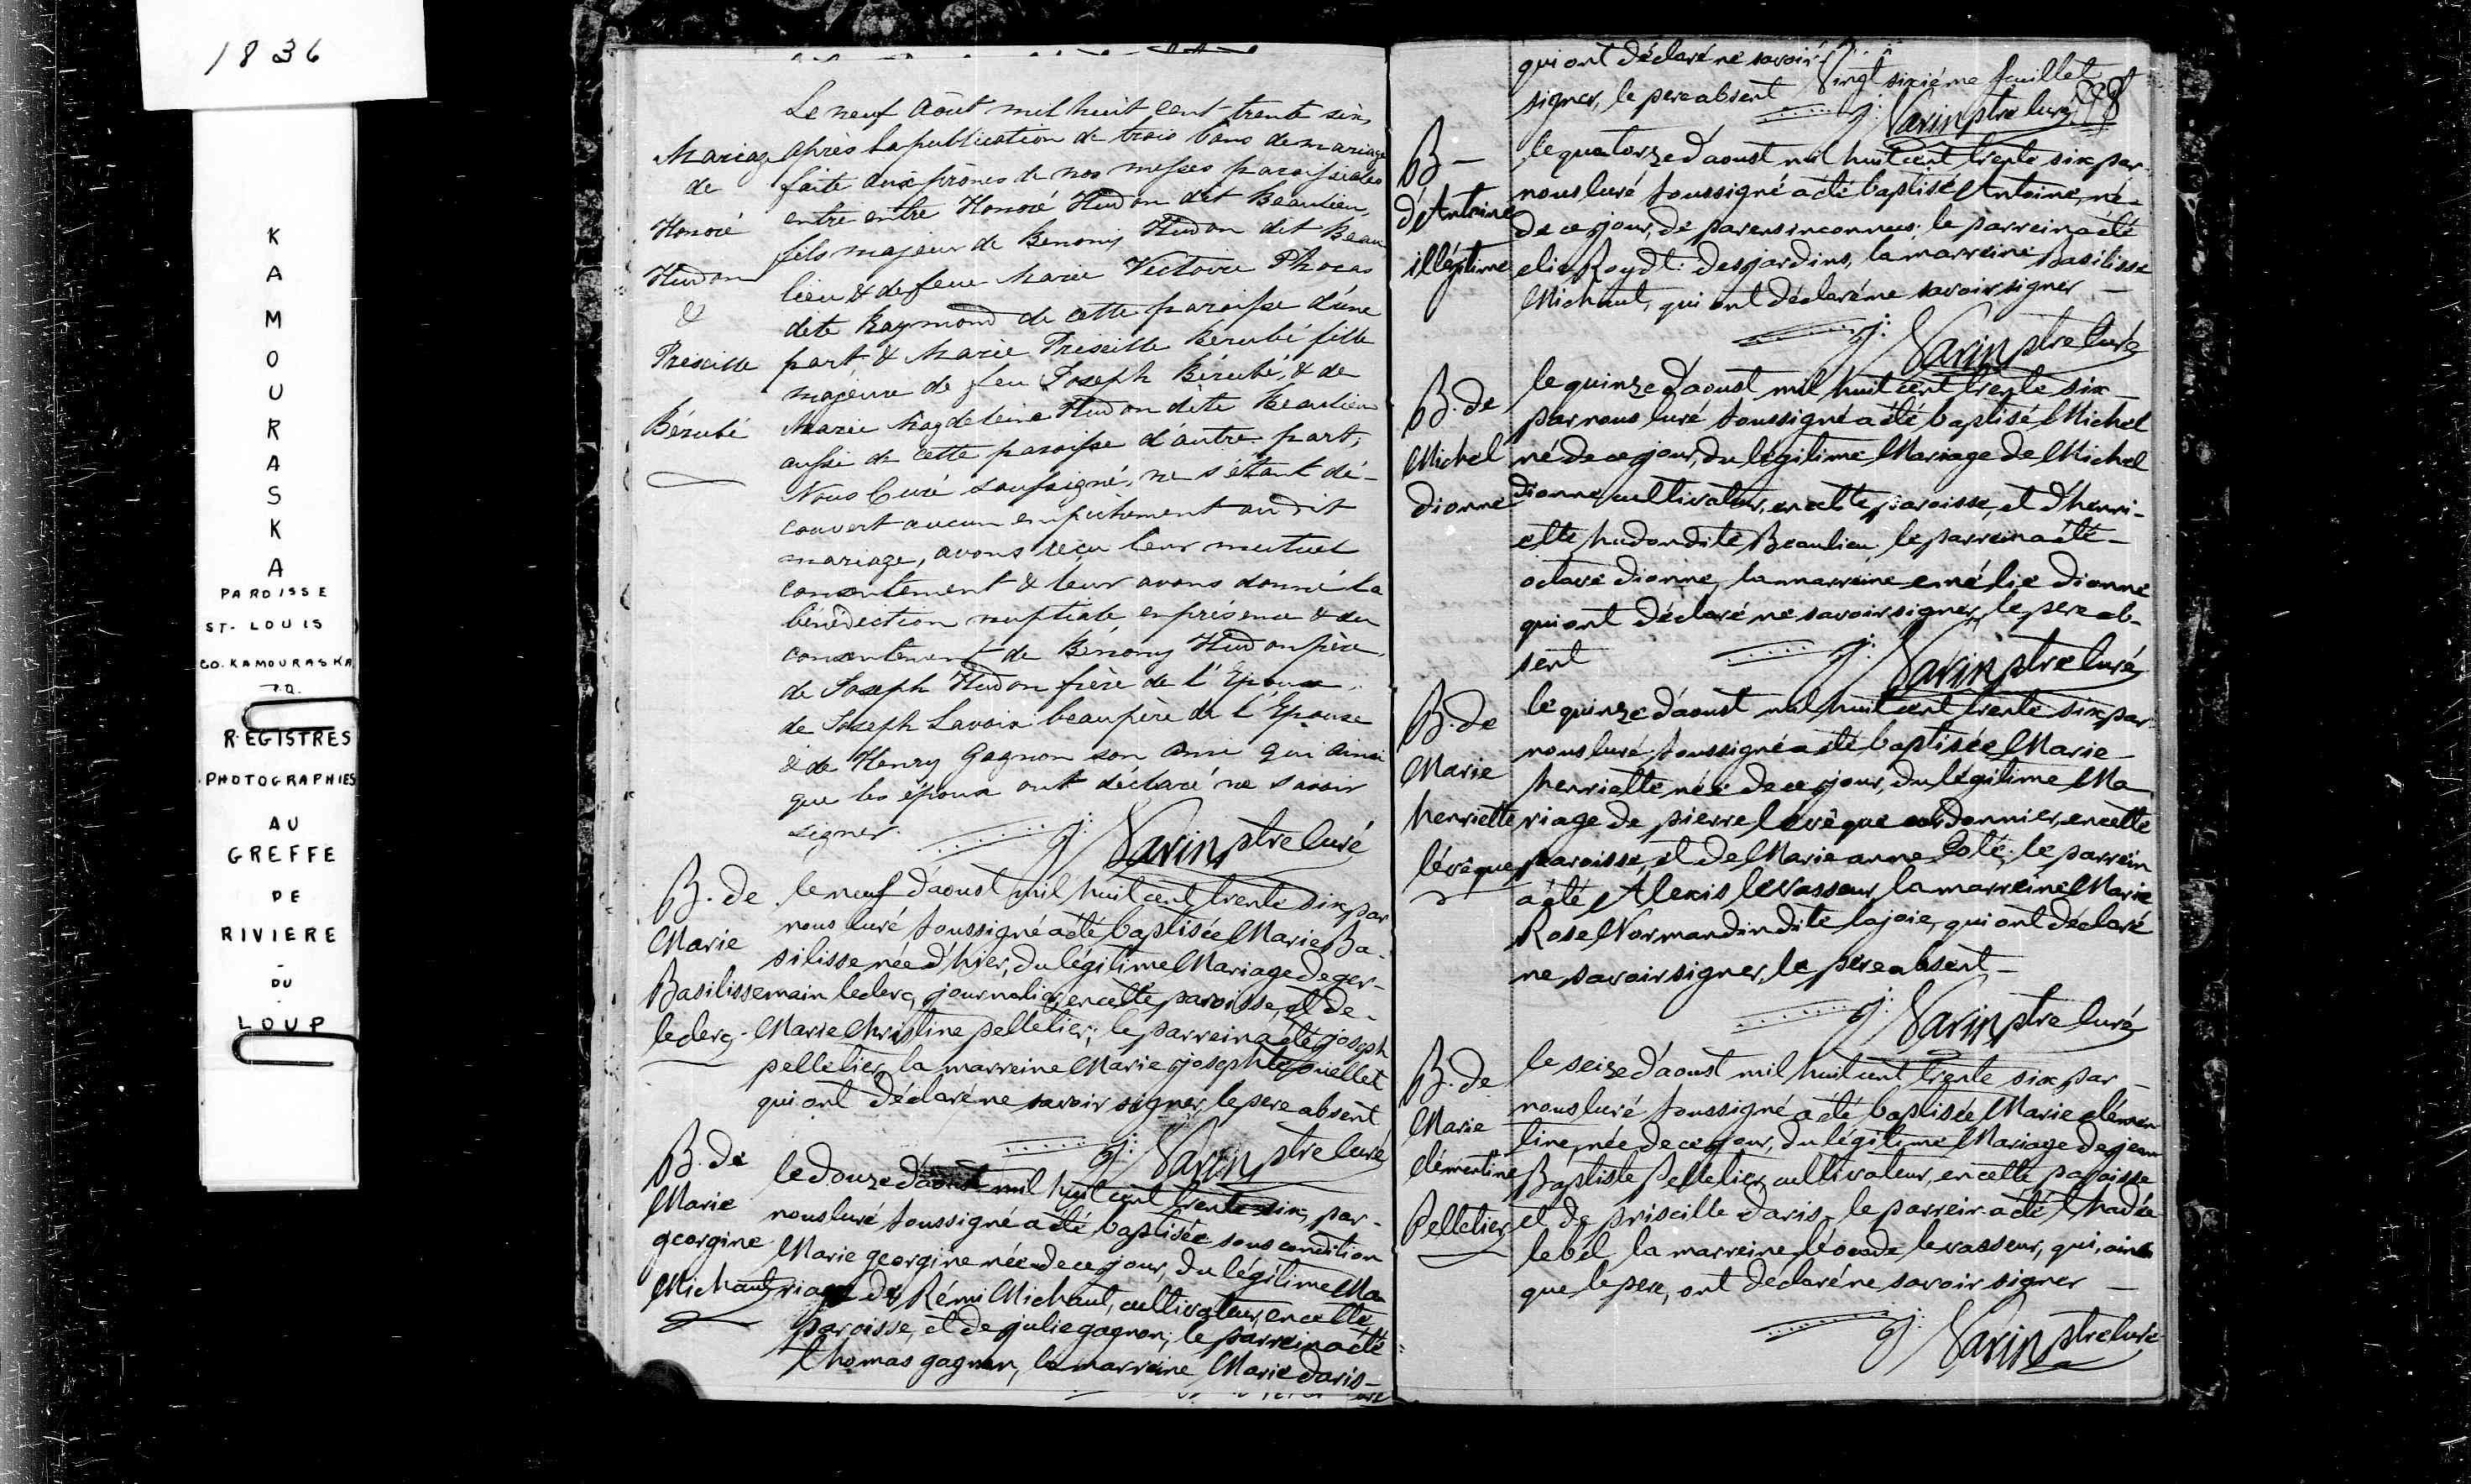 1836
KAMOURASKA
PAROISSE
ST. LOUIS
CO. KAMOURASKA
P.Q.
REGISTRES
PHOTOGRAPHIES
AU
GREFFE
DE
RIVIERE
-
DU
LOUP
Mariage
de
Honoré
Hudon
&
Prescille
Bérubé
Le neuf Août mil huit cent trente six,
après la publication de trois bans de mariage
faite aux prônes de nos messes paroissiales
entre entre Honoré Hudon dit Beaulieu,
fils majeur de Benony Hudon dit Beau
lieu & de feue Marie Victoire Phocas
dite Raymond de cette paroisse d'une
part, & Marie Prescille Bérubé fille
majeure de feu Joseph Bérubé, & de
Marie Magdeleine Hudon dite Beaulieu
aussi de cette paroisse d'autre part;
Nous Curé soussigné, ne s'étant dé-
couvert aucun empêchement au dit
mariage, avons reçu leur mutuel
consentement & leur avons donné la
bénédiction nuptiale en présence & du
consentement de Bénony Hudon père,
de Joseph Hudon frère de l'Epoux
de Joseph Lavoix beaupère de l'Epouse
& de Henry Gagnon son ami qui ainsi
que les époux ont déclaré ne savoir
signer.
j: Varin ptre Curé
B. de
Marie
Basilisse
leclerc
le neuf d'aoust mil huit cent trente six par
nous Curé soussigné a été baptisée Marie Ba-
silisse née d'hier, du légitime Mariage de ger-
main leclerc, journalier, en cette paroisse, et de-
Marie Christine pelletier; le parrein a été joseph
pelletier, la marreine Marie josephte ouellet
qui ont déclaré ne savoir signer, le pere absent
j: Varin ptre Curé
B. de
Marie
georgine
Michaut
le douze d'aoust mil huit cent trente six, par-
nous Curé soussigné a été baptisée sous condition
Marie georgine née de ce jour, du légitime Ma
riage de Rémi Michaut, cultivateur, en cette
paroisse, et de julie gagnon; le parrein a été
Thomas gagnon, la marreine Marie daris-
qui ont déclaré ne savoir
signer, le pere absent
Vingt sixième feuillet
j: Varin ptre Curé
B-
d'Antoine
illégitime
le quatorze d'aoust mil huit cent trente six par-
nous Curé soussigné a été baptisé Antoine, né-
de ce jour, de parens inconnus; le parrein a été
elie Roy dt: desjardins, la marreine Basilisse
Michaut, qui ont déclaré ne savoir signer -
j: Varin ptre Curé
B. de
Michel
dionne
le quinze d'aoust mil huit cent trente six
par nous Curé soussigné a été baptisé Michel
né de ce jour, du légitime Mariage de Michel
dionne cultivateur, en cette paroisse, et d'henri-
ette hudon dite Beaulieu; le parrein a été-
octave dionne, la marreine emélie dionne
qui ont déclaré ne savoir signer, le pere ab-
sent
j: Varin ptre Curé
B. de
Marie
henriette
lévêque
le quinze d'aoust mil huit cent trente six par
nous Curé, soussigné a été baptisée Marie-
henriette née de ce jour, du légitime Ma
riage de pierre lévêque cordonnier, en cette
paroisse, et de Marie anne Coté; le parrein
a été Alexis levasseur, la marreine Marie
Rose Normandin dite lajoie, qui ont déclaré
ne savoir signer, le pere absent-
j: Varin ptre Curé
B. de
Marie
clémentine
Pelletier
le seize d'aoust mil huit cent trente six par-
nous Curé soussigné a été baptisée Marie clémen
tine, née de ce jour, du légitime Mariage de jean
Baptiste Pelletier, cultivateur, en cette paroisse
et de priscille daris, le parrein a été thadée
lebel la marreine léocade levasseur, qui, ainsi
que le pere, ont déclaré ne savoir signer -
j: Varin ptre Curé